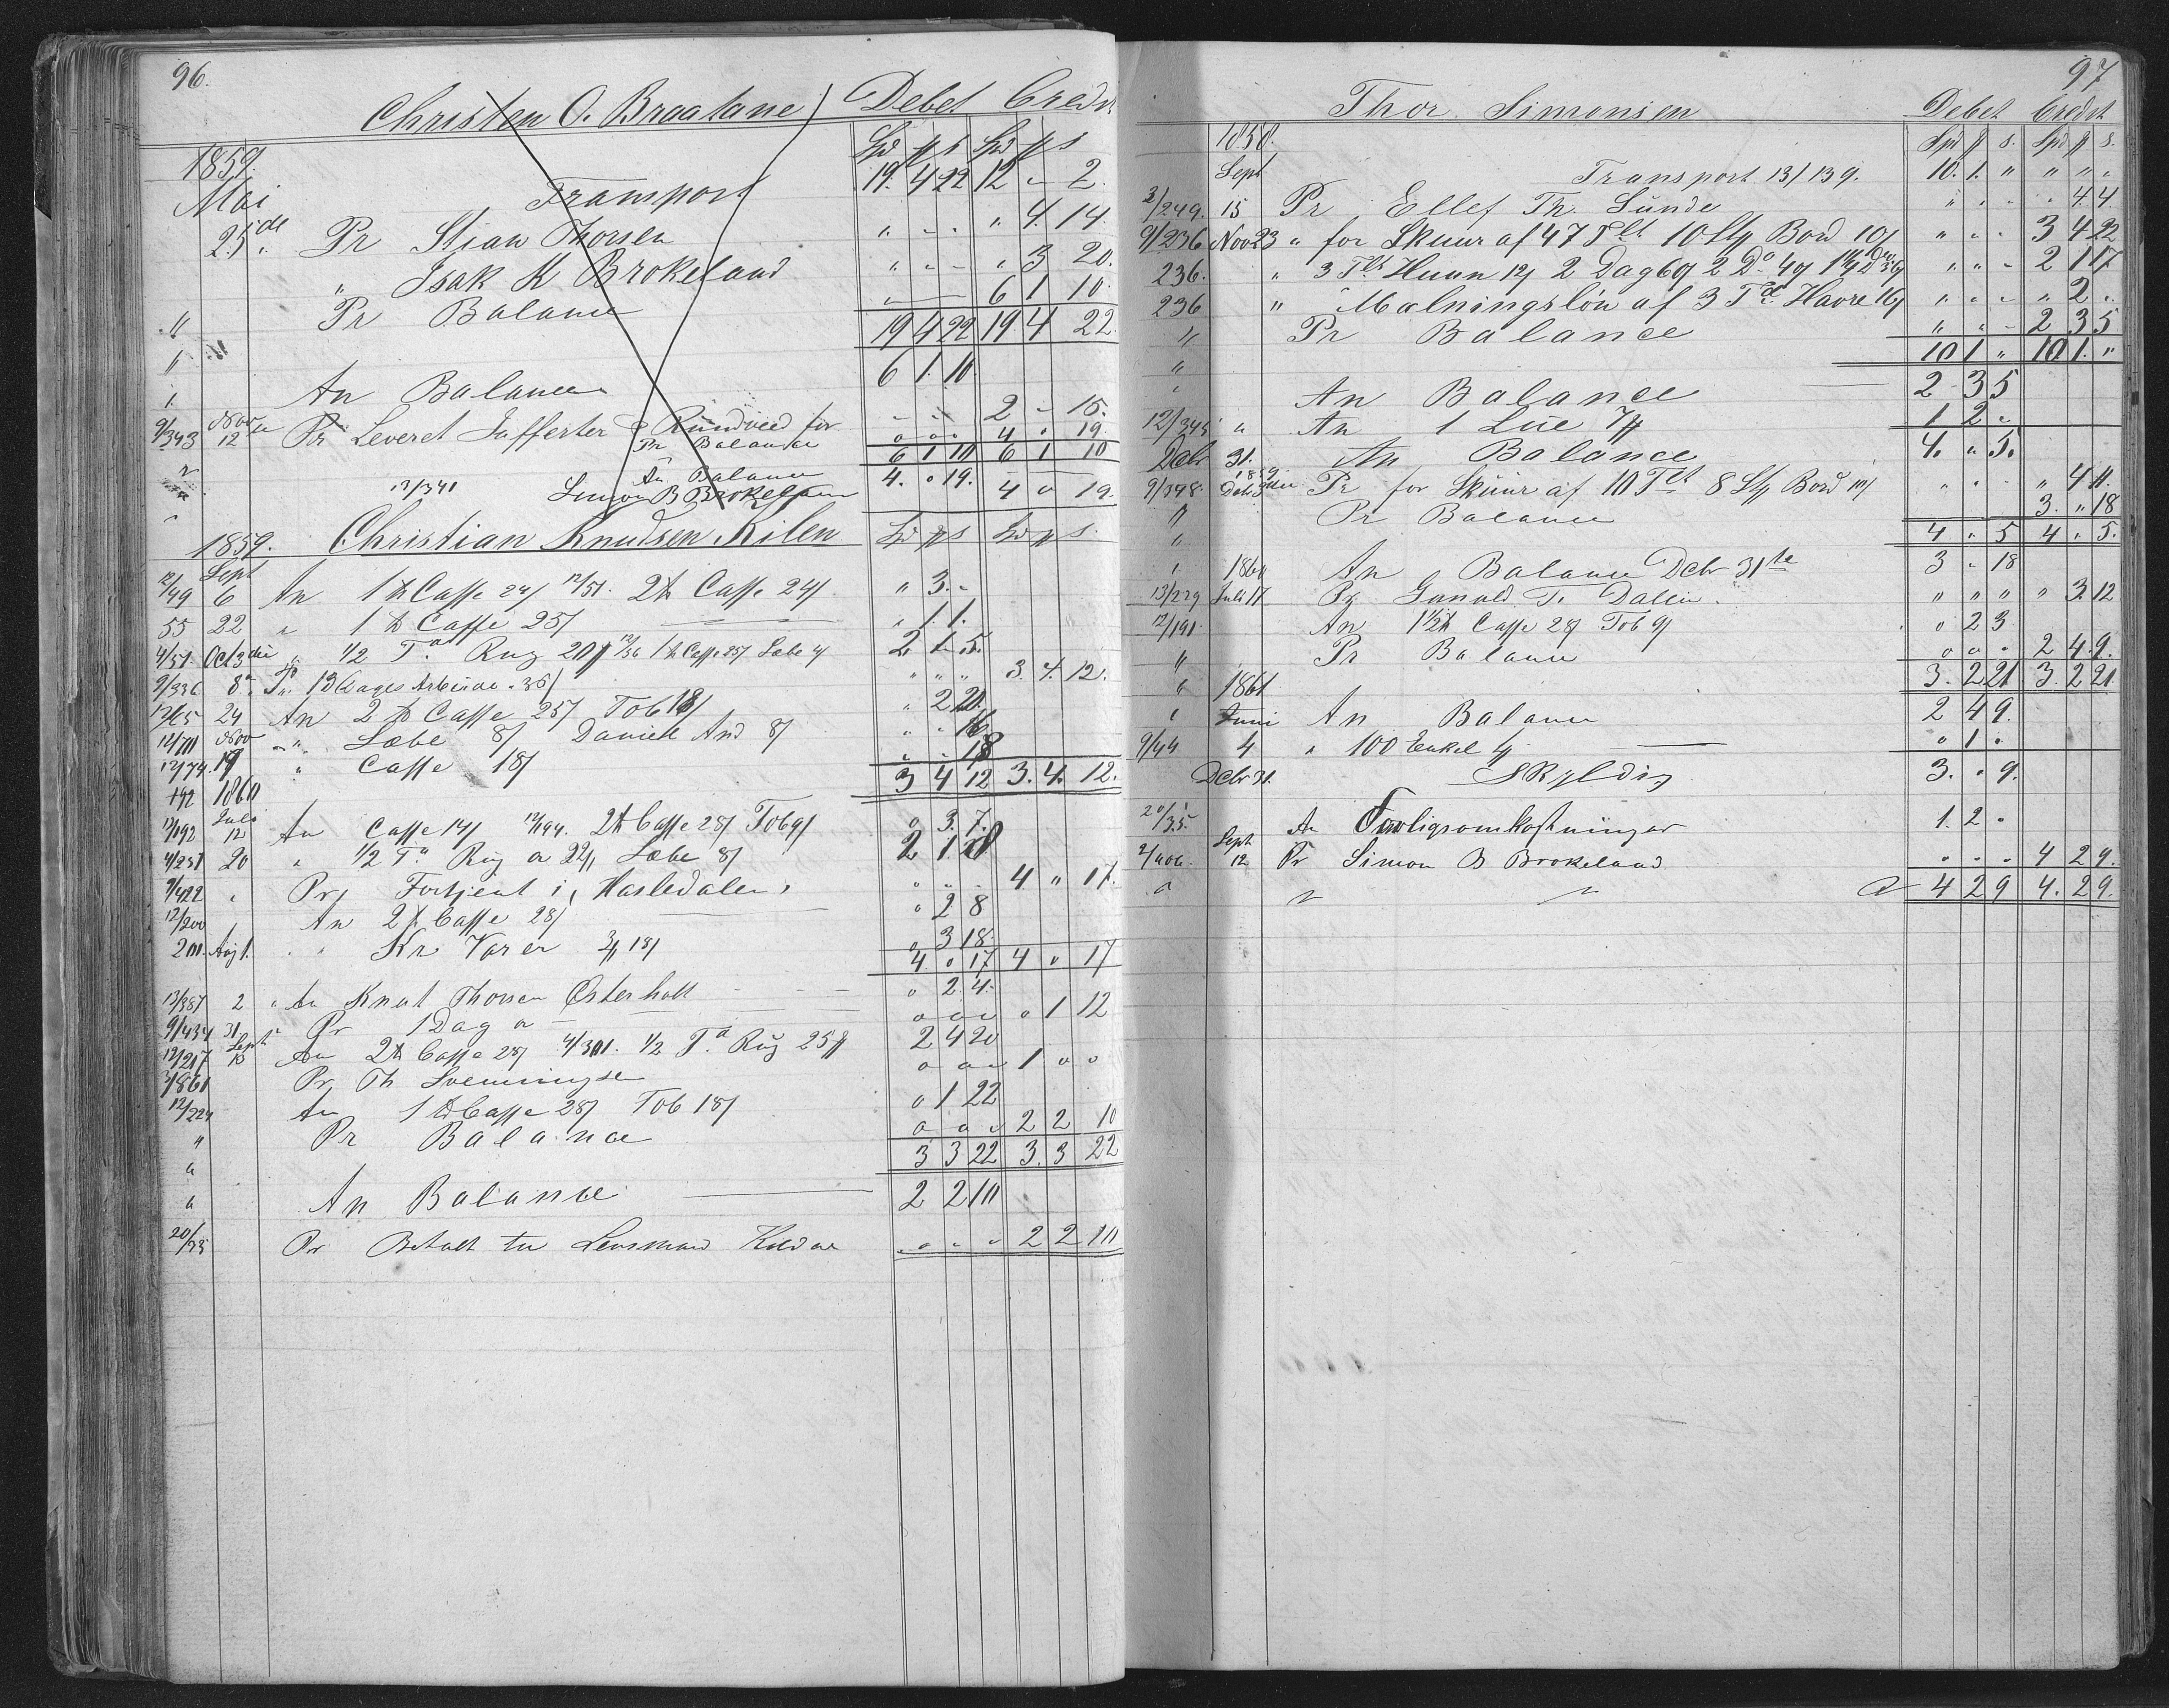 96.
Christen O. Braatane Debet Credit
1859. Spd # s Spd # s
Mai Transport 19. 4 22 12 " 2.
25de Pr Stian Thorsen " " " " 4. 14.
" Isak K Brokeland " " " " 3 20.
" Pr Balance " 6 1 10.
" 19 4 22 19. 4 22.
" An Balance 6 1. 10.
9/343 Nov 12 Pr Leveret Rundved for " " " 2 " 15.
Pr Balance " " " 4 " 19.
6 1 10 6 1 10
An Balance 4. " 19.
12/341 Simon B Brokeland 4 " 19.
1859. Christian Knudsen Kilen Spd # s Spd # s
Sept
12/49 6 An 1 ℔ Caffe 24/ 12/51. 2 ℔ Caffe 24/ " 3. "
55 22 " 1 ℔ Caffe 25/ " 1 1.
4/51. Oct 3die " 1/2 Td Rug 20# 12/56 1 ℔ Caffe 25/ Sæbe 4/ 2. 1. 5.
9/336 8de Pr. 13 Dages Arbeide 36/ " " " 3. 4. 12.
12/65 24 An 2 ℔ Caffe 25/ Tob 18/ " 2 20.
12/71 Nov " Sæbe 8/ Daniel And 8/ " " 16
12/74. 19 " Caffe 18/ " " 18
192 1860 3 4 12 3. 4. 12.
Juli
12/192 12 An Caffe 14/ 12/194. 2 ℔ Caffe 28/ Tob 9/ " 3. 7.
4/251 20 " 1/2 Td Rug a 22# Sæbe 8/ 2 1 8
9/422 " Pr Fortjent i Hasledalen " " " 4 " 17.
12/200 " An 2 ℔ Caffe 28/ " 2 8
201. Aug 1. " Kr Varer 3# 18/ " 3 18.
4. " 17 4 " 17
13/387 2 " An Knut Thorsen Østerholt " 2. 4.
9/434 31 Pr 1 Dag a " " " " 1 12
12/217 Sept 10 An 2 ℔ Caffe 28/ 4/301. 1/2 Td Rug 25# 2 4 20
1861 Pr Th Svenningsen " " " 1 " "
12/224 An 1 ℔ Caffe 28/ Tob 18/ " 1 22
" Pr Balance " " " 2 2 10
" 3 3 22 3. 3 22
" An Balance 2 2 10
20/33 Pr Betalt til Lensmand " " " 2 2 10
97
Thor Simonsen Debet Credit
1858. Spd # s. Spd # s.
Sept Transport 13/139. 10. 1. " " " "
3/249. 15 Pr Ellef Th. Lunde " " " " 4. 4
9/236 Nov 23 " for Skuur af 47 Tlt 10 Stk Bord 10/ " " " 3 4 22
236. " 3 Tlt Huun 12/ 2 Dag 60/ 2 Do 40/ " " " 2 1 17
236 " Malningsløn af 3 Td. Havre 16/ " " " " 2 "
" Pr Balance " " " 2 3 5
" 10 1 " 10 1. "
" An Balance 2 3 5
12/345 " An 1 Lue 7# 1 2 "
Dcbr 31. An Balance 4. " 5.
1859
9/348. Pr for Skuur af 10 Tlt 8 Stk Bord 10/ " " " " 4 11.
" Pr Balance 3. " 18
" 4 " 5 4 " 5.
" 1860 An Balance Dcbr 31te 3 " 18
13/229 Juli 17 Pr Gunuld T. Dalen " " " " 3. 12
12/191. An 1 1/2 ℔ Caffe 28/ Tob 9/ " 2 3
" Pr Balance " " " 2 4. 9.
" 1861 3. 2 21 3. 2 21
" Juni An Balance 2 4 9.
9/44 4 " 100 Enkel 4/ " 1 "
Dcbr 31. Skyldig 3. " 9.
20/35. An Forligsomkostninger 1. 2 "
2/406. Sept 12 Pr Simon B Brokeland " " " 4 2 9.
" " " " 4 2 9 4. 2 9.